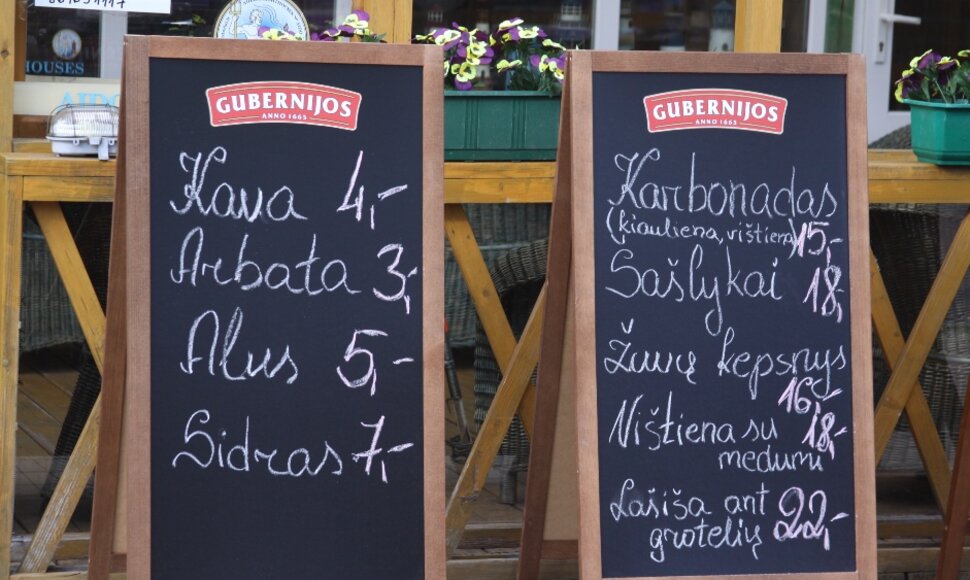 HOUSES
GUBERNIJOS
ANNO 1665
Kava 4,-
Arbata 3,-
Alus 5,-
Sidras 7,-
GUBERNIJOS
ANNO 1665
Karbonadas
(kiauliena, vištiena) 15,-
Sašlykai 18,-
Žuvų kepsnys
16,-
Vištiena su 18,-
medumi
Lašiša ant
grotelių 22,-